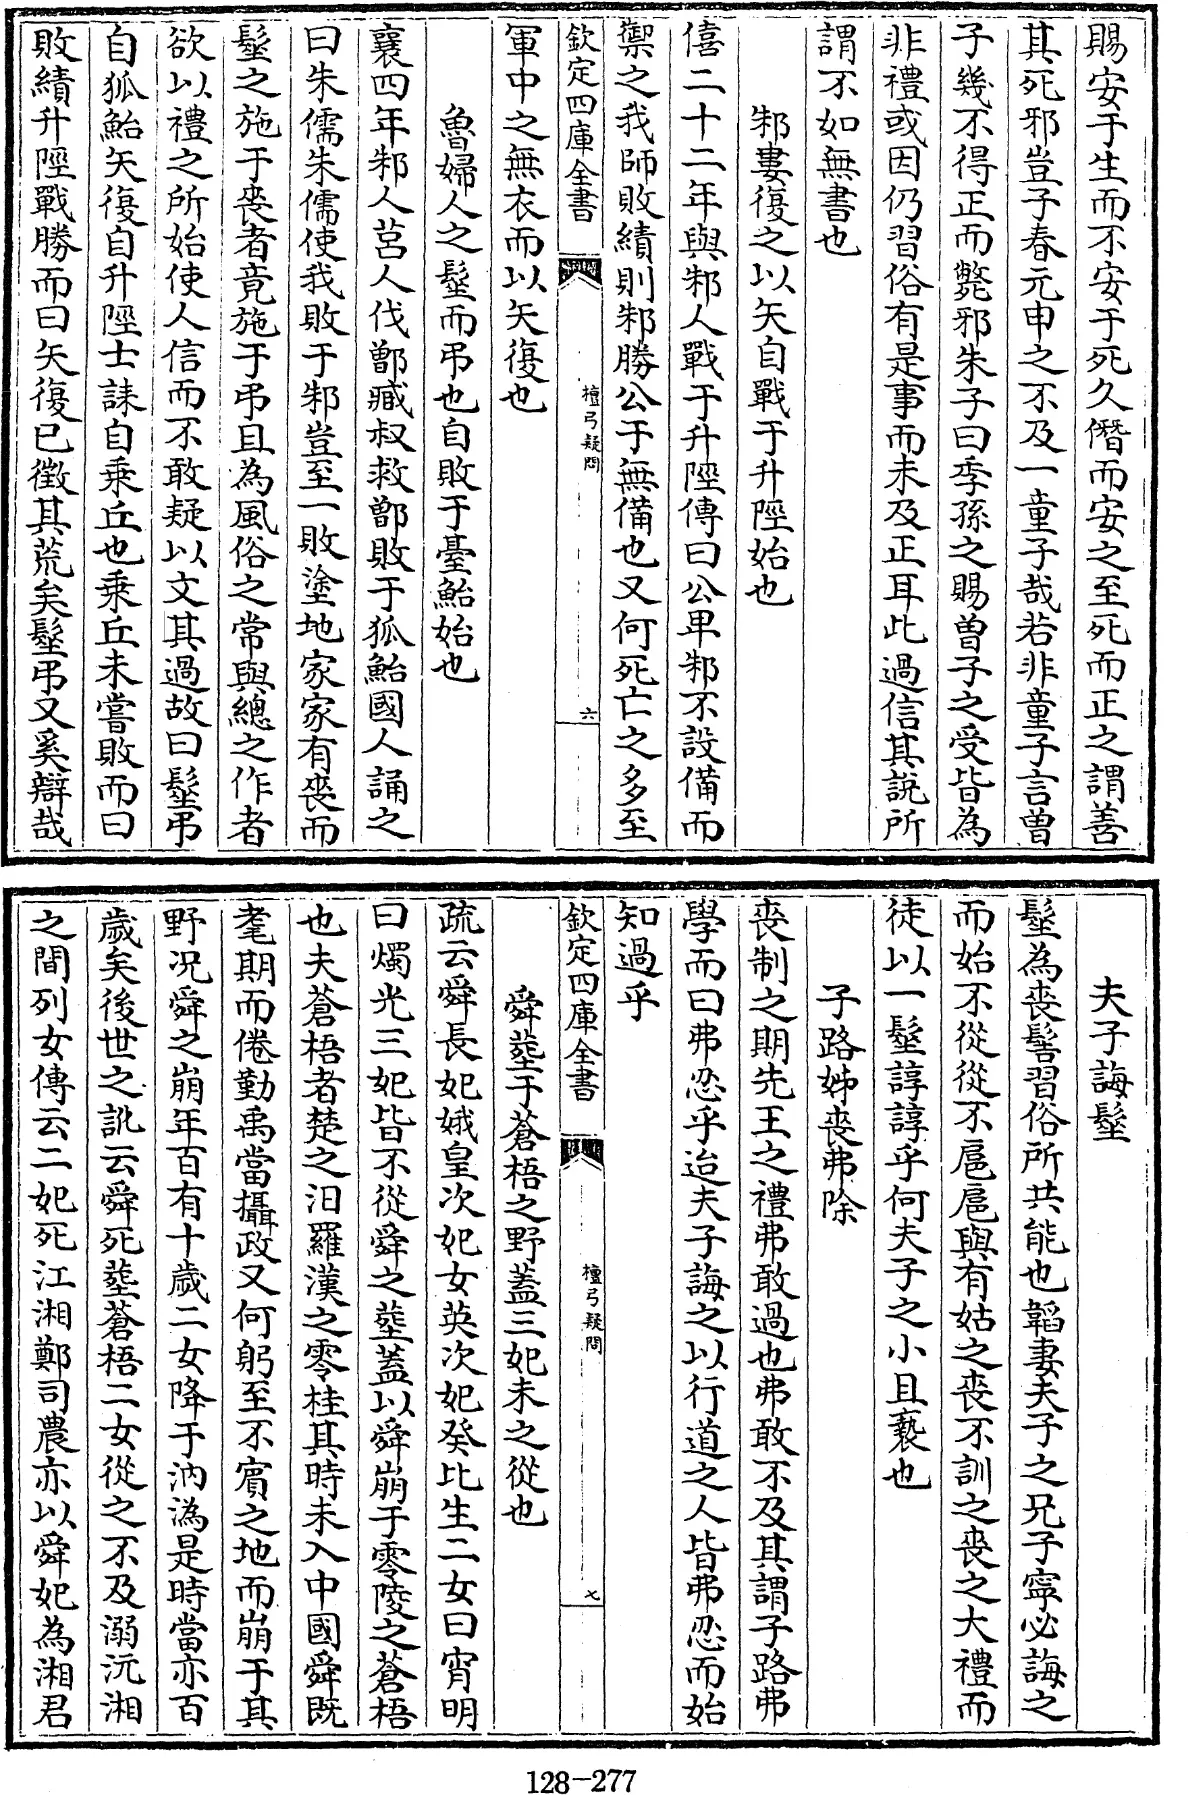 賜安于生而不安于死久僭而安之至死而正之謂善
其死邪豈子春元申之不及一童子哉若非童子言曾
子幾不得正而斃邪朱子曰季孫之賜曾子之受皆為
非禮或因仍習俗有是事而未及正耳此過信其説所
謂不如無書也
邾婁復之以矢自戰于升陘始也
僖二十二年與邾人戰于升陘傳曰公卑邾不設備而
禦之我師敗績則邾勝公于無備也又何死亡之多至
欽定四庫全書
檀弓疑問
六
軍中之無衣而以矢復也
魯婦人之髽而弔也自敗于臺鮐始也
襄四年邾人莒人伐鄫臧叔救鄫敗于狐鮐國人誦之
曰朱儒朱儒使我敗于邾豈至一敗塗地家家有喪而
髽之施于喪者竟施于弔且為風俗之常與總之作者
欲以禮之所始使人信而不敢疑以文其過故曰髽弔
自狐鮐矢復自升陘士誄自乗丘也乗丘未嘗敗而曰
敗績升陘戰勝而曰矢復已徵其荒矣髽弔又奚辯哉
夫子誨髽
髽為喪髻習俗所共能也韜妻夫子之兄子寧必誨之
而始不從從不扈扈與有姑之喪不訓之喪之大禮而
徒以一髽諄諄乎何夫子之小且褻也
子路姊喪弗除
喪制之期先王之禮弗敢過也弗敢不及其謂子路弗
學而曰弗忍乎迨夫子誨之以行道之人皆弗忍而始
知過乎
欽定四庫全書
檀弓疑問
七
舜塟于蒼梧之野蓋三妃未之從也
疏云舜長妃娥皇次妃女英次妃癸比生二女曰宵明
曰燭光三妃皆不從舜之塟蓋以舜崩于零陵之蒼梧
也夫蒼梧者楚之汨羅漢之零桂其時未入中國舜既
耄期而倦勤禹當攝政又何躬至不賔之地而崩于其
野况舜之崩年百有十歲二女降于汭溈是時當亦百
歲矣後世之訛云舜死塟蒼梧二女從之不及溺沅湘
之間列女傳云二妃死江湘鄭司農亦以舜妃為湘君
128-277